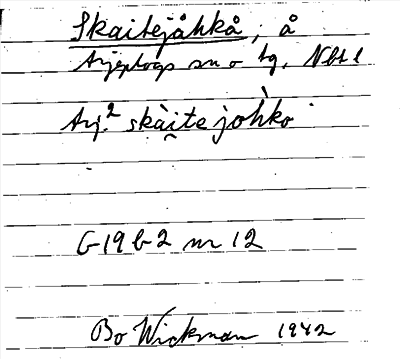 Skaitejåhkå, å
Arjeplogs sn o tg. Nbt l
Arj.² skài̮te joh̀ko
G 19 b 2 nr 12
Bo Wickman 1942